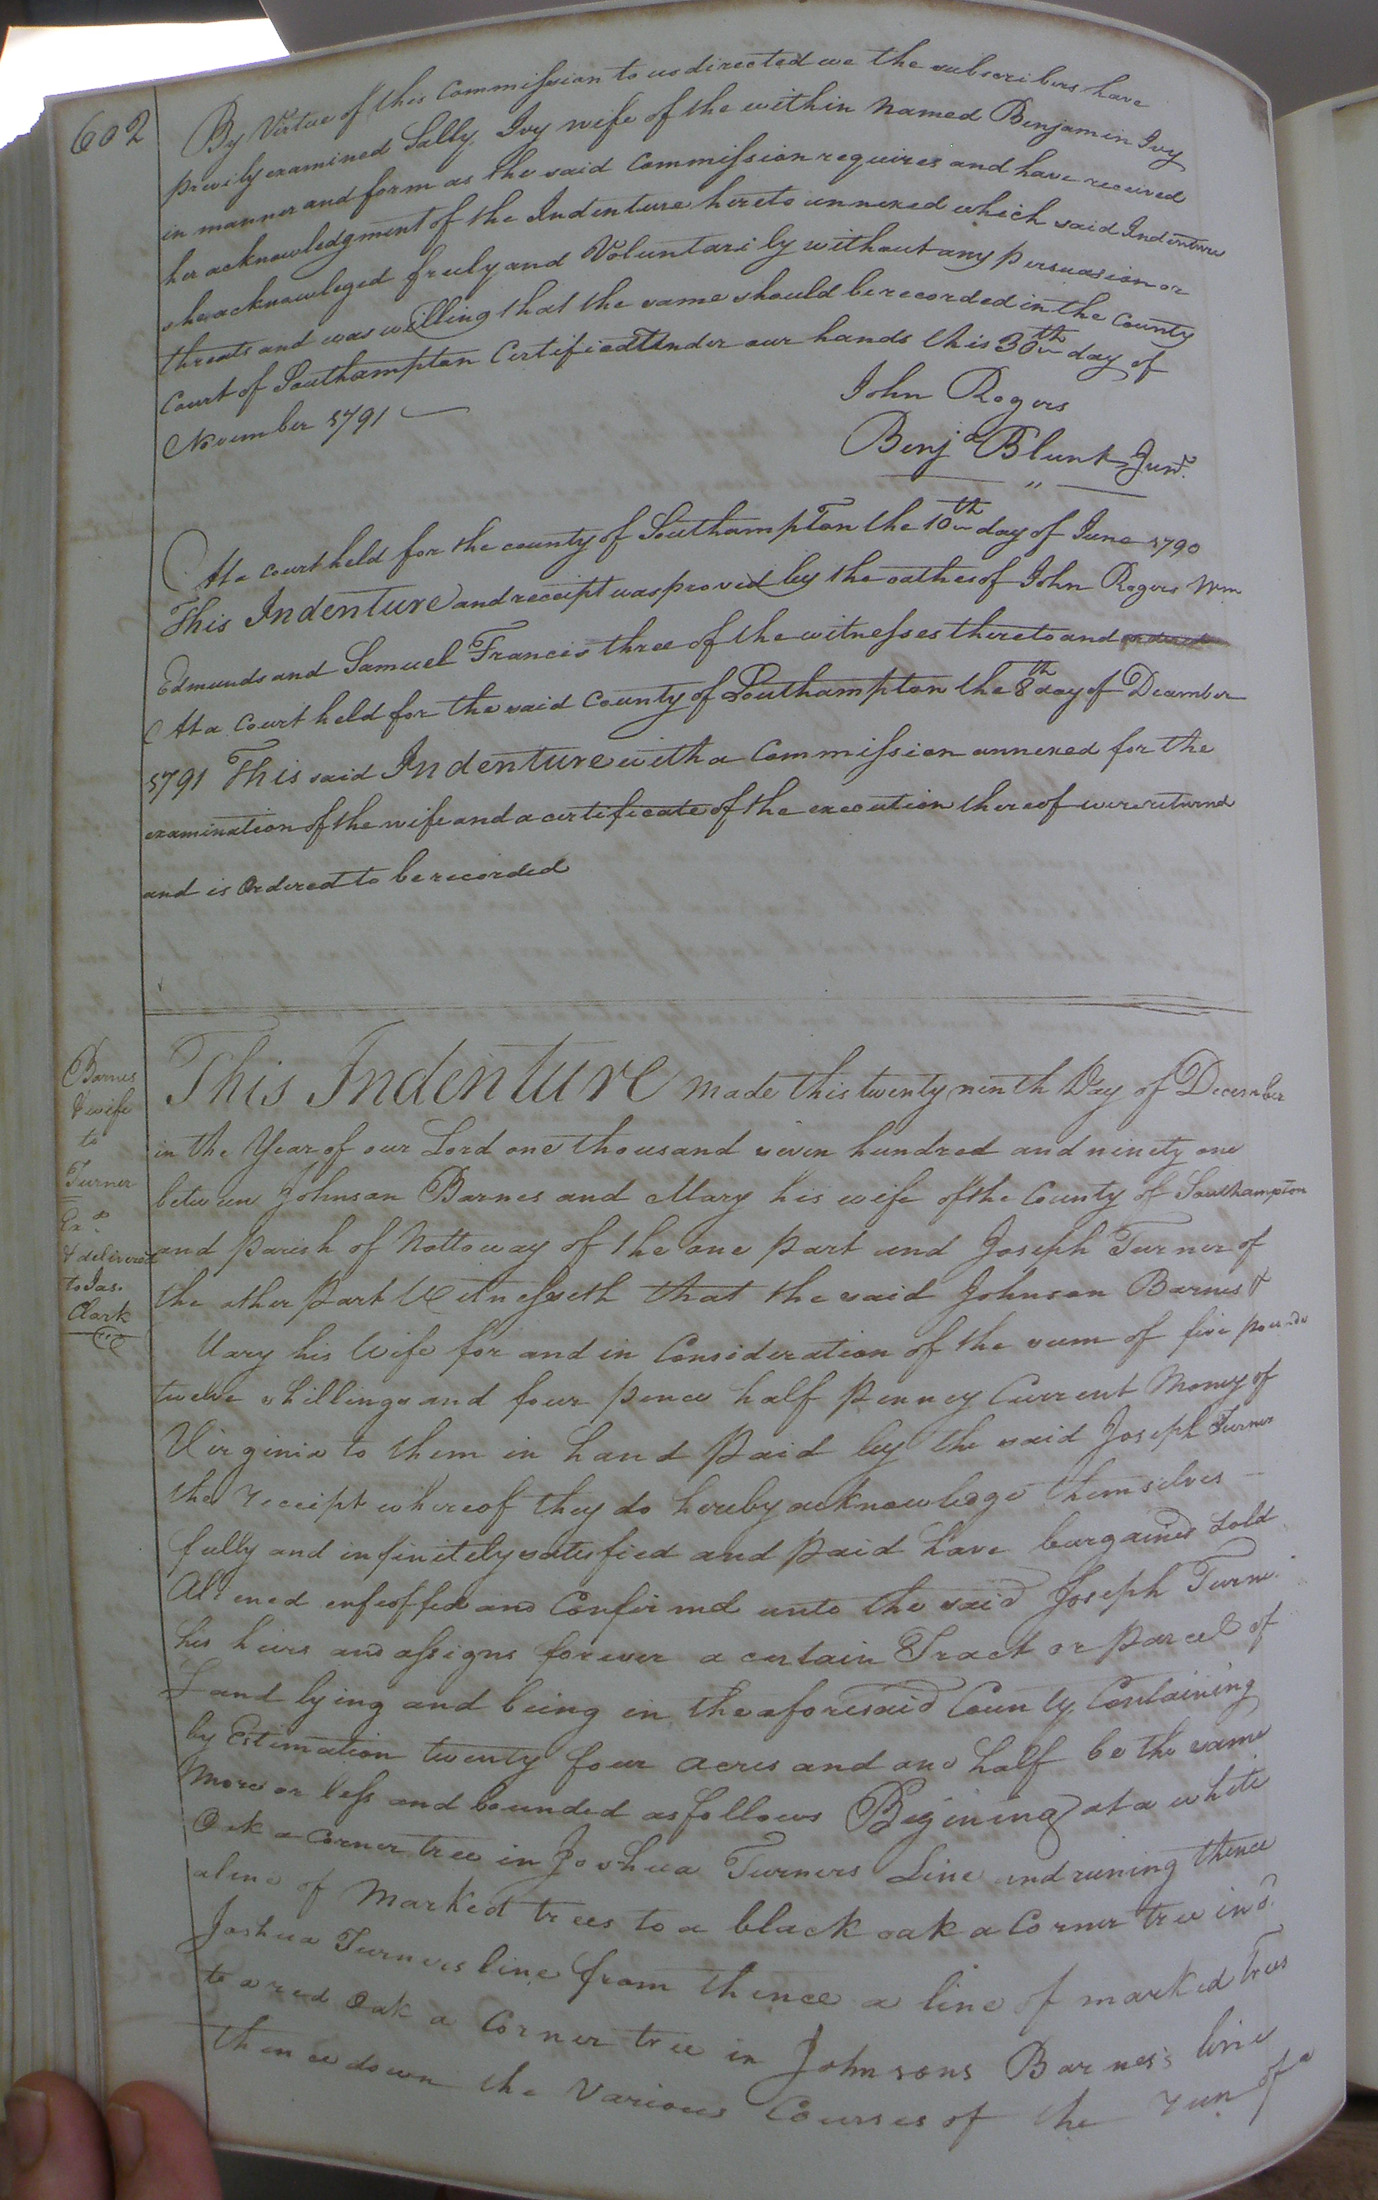 602
By Virtue of this Commission to us directed we the subscribers have
privily examined Sally Ivy wife of the within named Benjamin Ivy
in manner and form as the said Commission requires and have received
her acknowledgment of the Indenture hereto annexed which said Indenture
she acknowleged freely and Voluntarily without any persuasion or
threats and was willing that the same should be recorded in the County
Court of Southampton Certified Under our hands this 30th day of
November 1791
John Rogers
Benja Blunt Junr.
At a court held for the county of Southampton the 10th day of June 1790
This Indenture and receipt was proved by the oathes of John Rogers Wm
Edmunds and Samuel Francis three of the witnesses thereto and
At a Court held for the said County of Southampton the 8th day of December
1791 This said Indenture with a Commission annexed for the
examination of the wife and a certificate of the execution thereof were returnd
and is Ordered to be recorded
Barnes
& wife
to
Turner
Exd.
& delivered
to Jas.
Clark
This Indenture made this twenty ninth Day of December
in the Year of our Lord one thousand seven hundred and ninety one
between Johnson Barnes and Mary his wife of the County of Southampton
and parish of Nottoway of the one part and Joseph Turner of
the other part Witnesseth that the said Johnson Barnes &
Mary his Wife for and in Consideration of the sum of five pounds
twelve shillings and four pence half penney Current Money of
Virginia to them in hand paid by the said Joseph Turner
the receipt whereof they do hereby acknowledge themselves
fully and infinitely satisfied and paid have bargained sold
Aliened enfeoffed and Confirmd unto the said Joseph Turner
his heirs and assigns forever a certain Tract or parcel of
Land lying and being in the aforesaid County Containing
by Estimation twenty four acres and one half be the same
More or less and bounded as follows Begining at a white
Oak a Corner tree in Joshua Turners Line and runing thence
a line of Marked trees to a black oak a Corner tree in sd.
Joshua Turners line from thence a line of marked trees
to a red Oak a Corner tree in Johnsons Barnes's line
thence down the Various Courses of the run of a